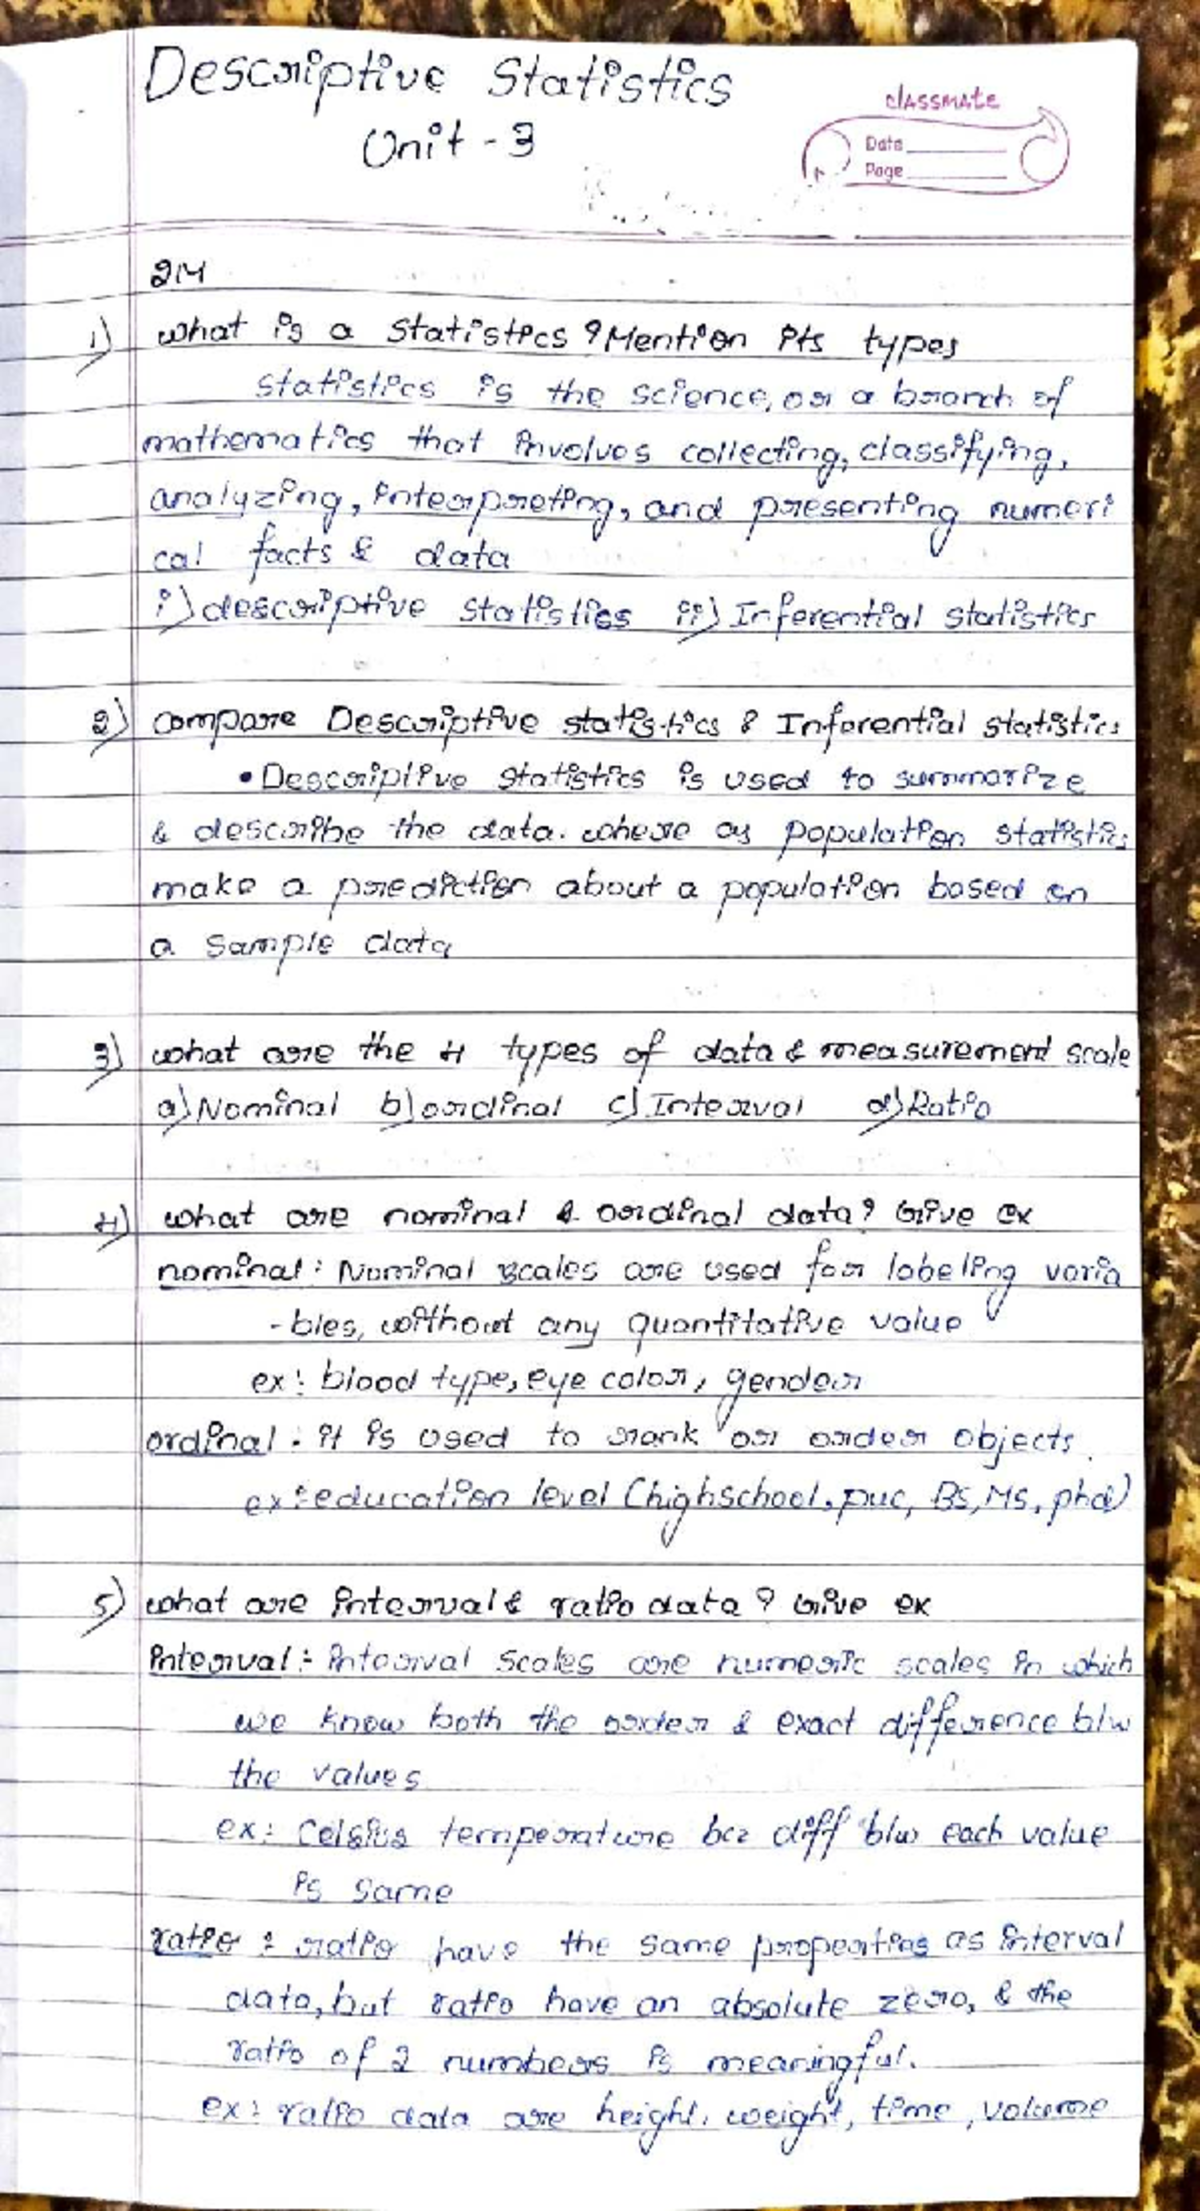 Descriptive Statistics
Unit - 3
classmate
Date
Page
2M
1) what is a Statistics ? Mention its types
statistics is the science, or a branch of
mathematics that involves collecting, classifying,
analyzing, interpreting, and presenting numeri
cal facts & data
i) descriptive statistics ii) Inferential statistics
2) compare Descriptive statistics & Inferential statistics
• Descriptive statistics is used to summarize
& describe the data. where as population statistics
make a prediction about a population based on
a sample data
3) what are the 4 types of data & measurement scale
a) Nominal b) ordinal c) Interval d) Ratio
4) what are nominal & ordinal data? Give ex
nominal : Nominal scales are used for labeling varia
- bles, without any quantitative value
ex : blood type, eye color, gender
ordinal : it is used to rank or order objects.
ex : education level (highschool, puc, BS, MS, phd)
5) what are interval & ratio data ? Give ex
interval :- interval scales are numeric scales in which
we know both the order & exact difference b/w
the values
ex : Celsius temperature bcz diff b/w each value
is same
ratio : ratio have the same properties as interval
data, but ratio have an absolute zero, & the
ratio of 2 numbers is meaningful.
ex : ratio data are height, weight, time, volume